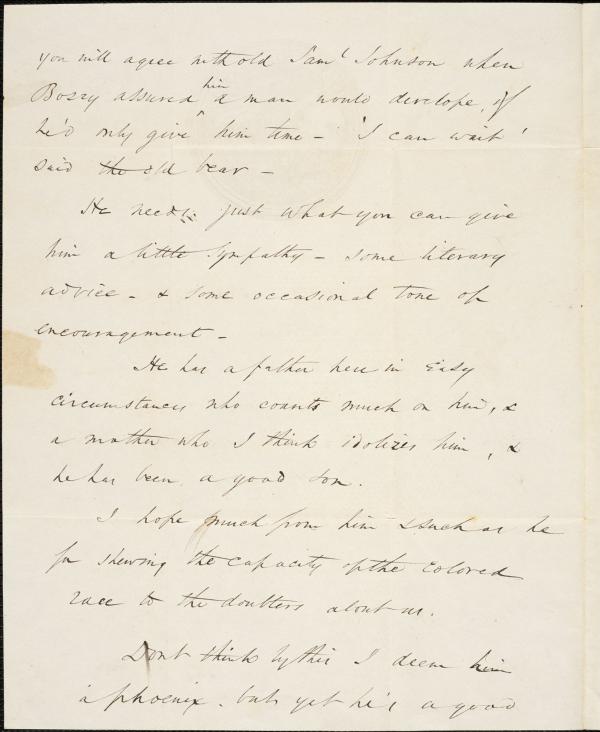 you will agree with old Saml Johnson when
Bozzy assured him a man would develope, if
he'd only give him time - 'I can wait'
said the old bear -
He needs just what you can give
him a little sympathy - some literary
advice - & some occasional tone of
encouragement -
He has a father here in easy
circumstances who counts much on him, &
a mother who I think idolizes him, &
he has been a good son.
I hope much from him & such as he
for shewing the capacity of the colored
race to the doubters about us.
Dont think by this I deem him
a phoenix. but yet he's a good